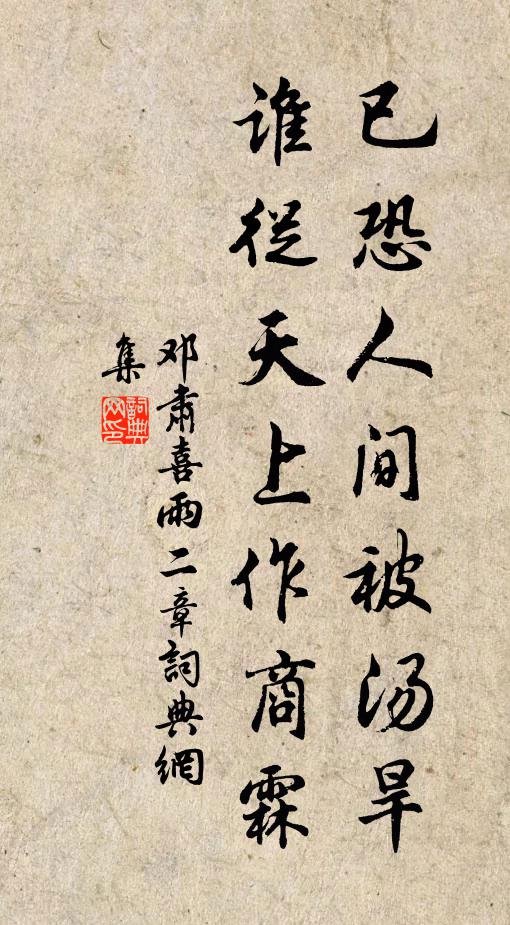 已恐人间被汤旱
谁從天上作商霖
邓肃喜雨二章詞典網
集
詞典网印